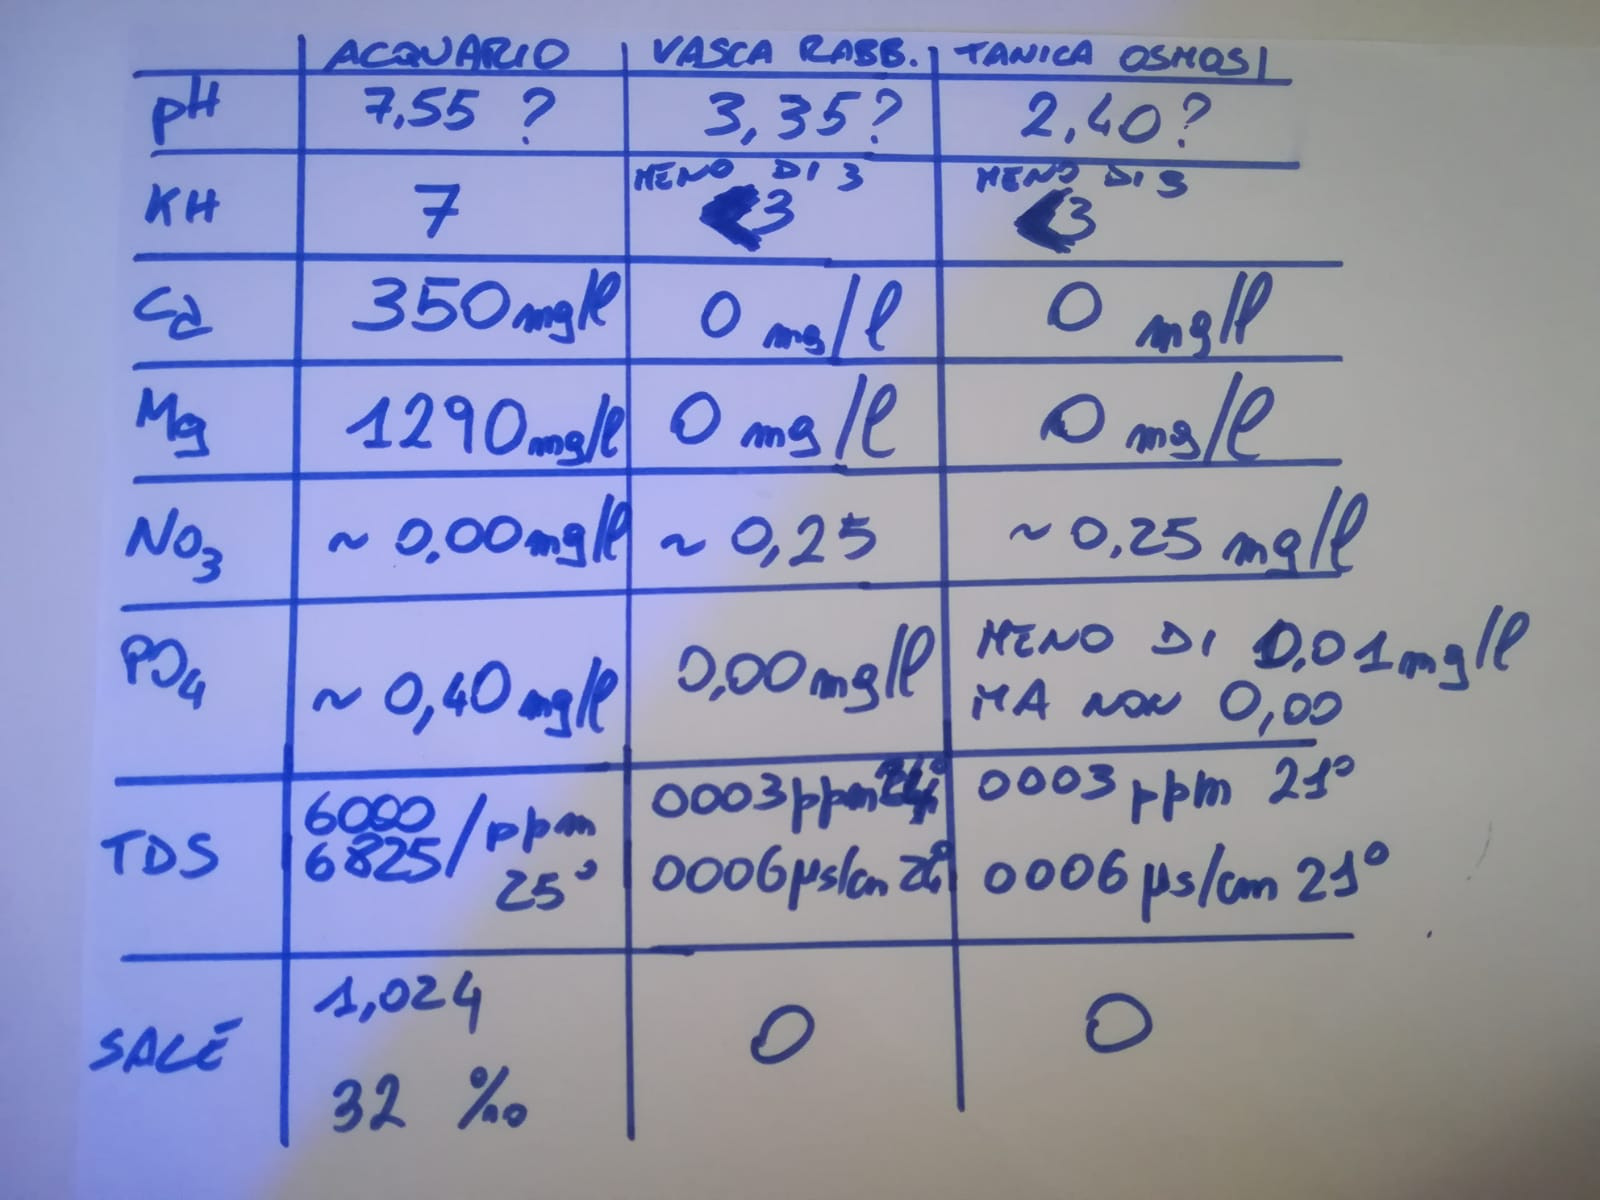 ACQUARIO VASCA RABB. TANICA OSMOSI
pH 7,55 ? 3,35? 2,40?
KH 7 MENO DI 3 <3 MENO DI 3 <3
Ca 350mg/l 0 mg/l 0 mg/l
Mg 1290mg/l 0 mg/l 0 mg/l
NO3 ~ 0,00mg/l ~ 0,25 ~ 0,25 mg/l
PO4 ~ 0,40mg/l 0,00mg/l MENO DI 0,01mg/l
MA NON 0,00
TDS 6000 6825/ppm 25° 0003ppm 0003 ppm 21°
0006µs/cm 0006 µs/cm 21°
SALE 1,024 0 0
32 ‰